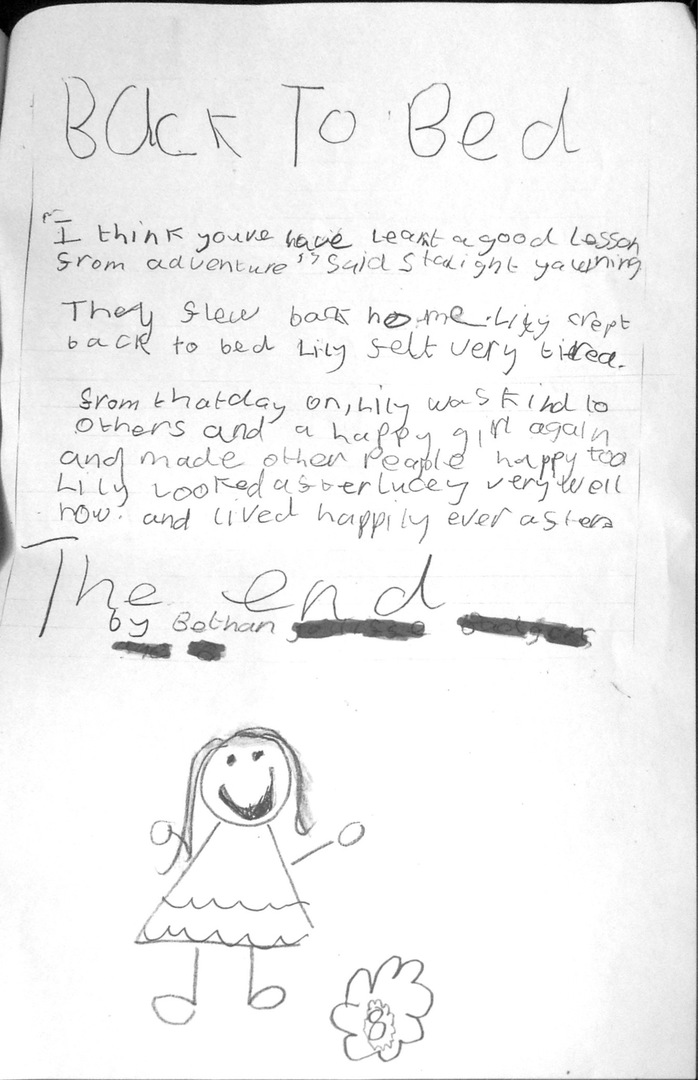 Back To Bed
"I think youve have learnt a good lesson
from adventure" said Stalight yawning
They flew back home. Lily crept
back to bed Lily felt very tired.
from that day on, Lily was kind to
others and a happy girl again
and made other People happy too
Lily Looked after Lucey very well
now. and lived happily ever after
The end
by Bethan
8